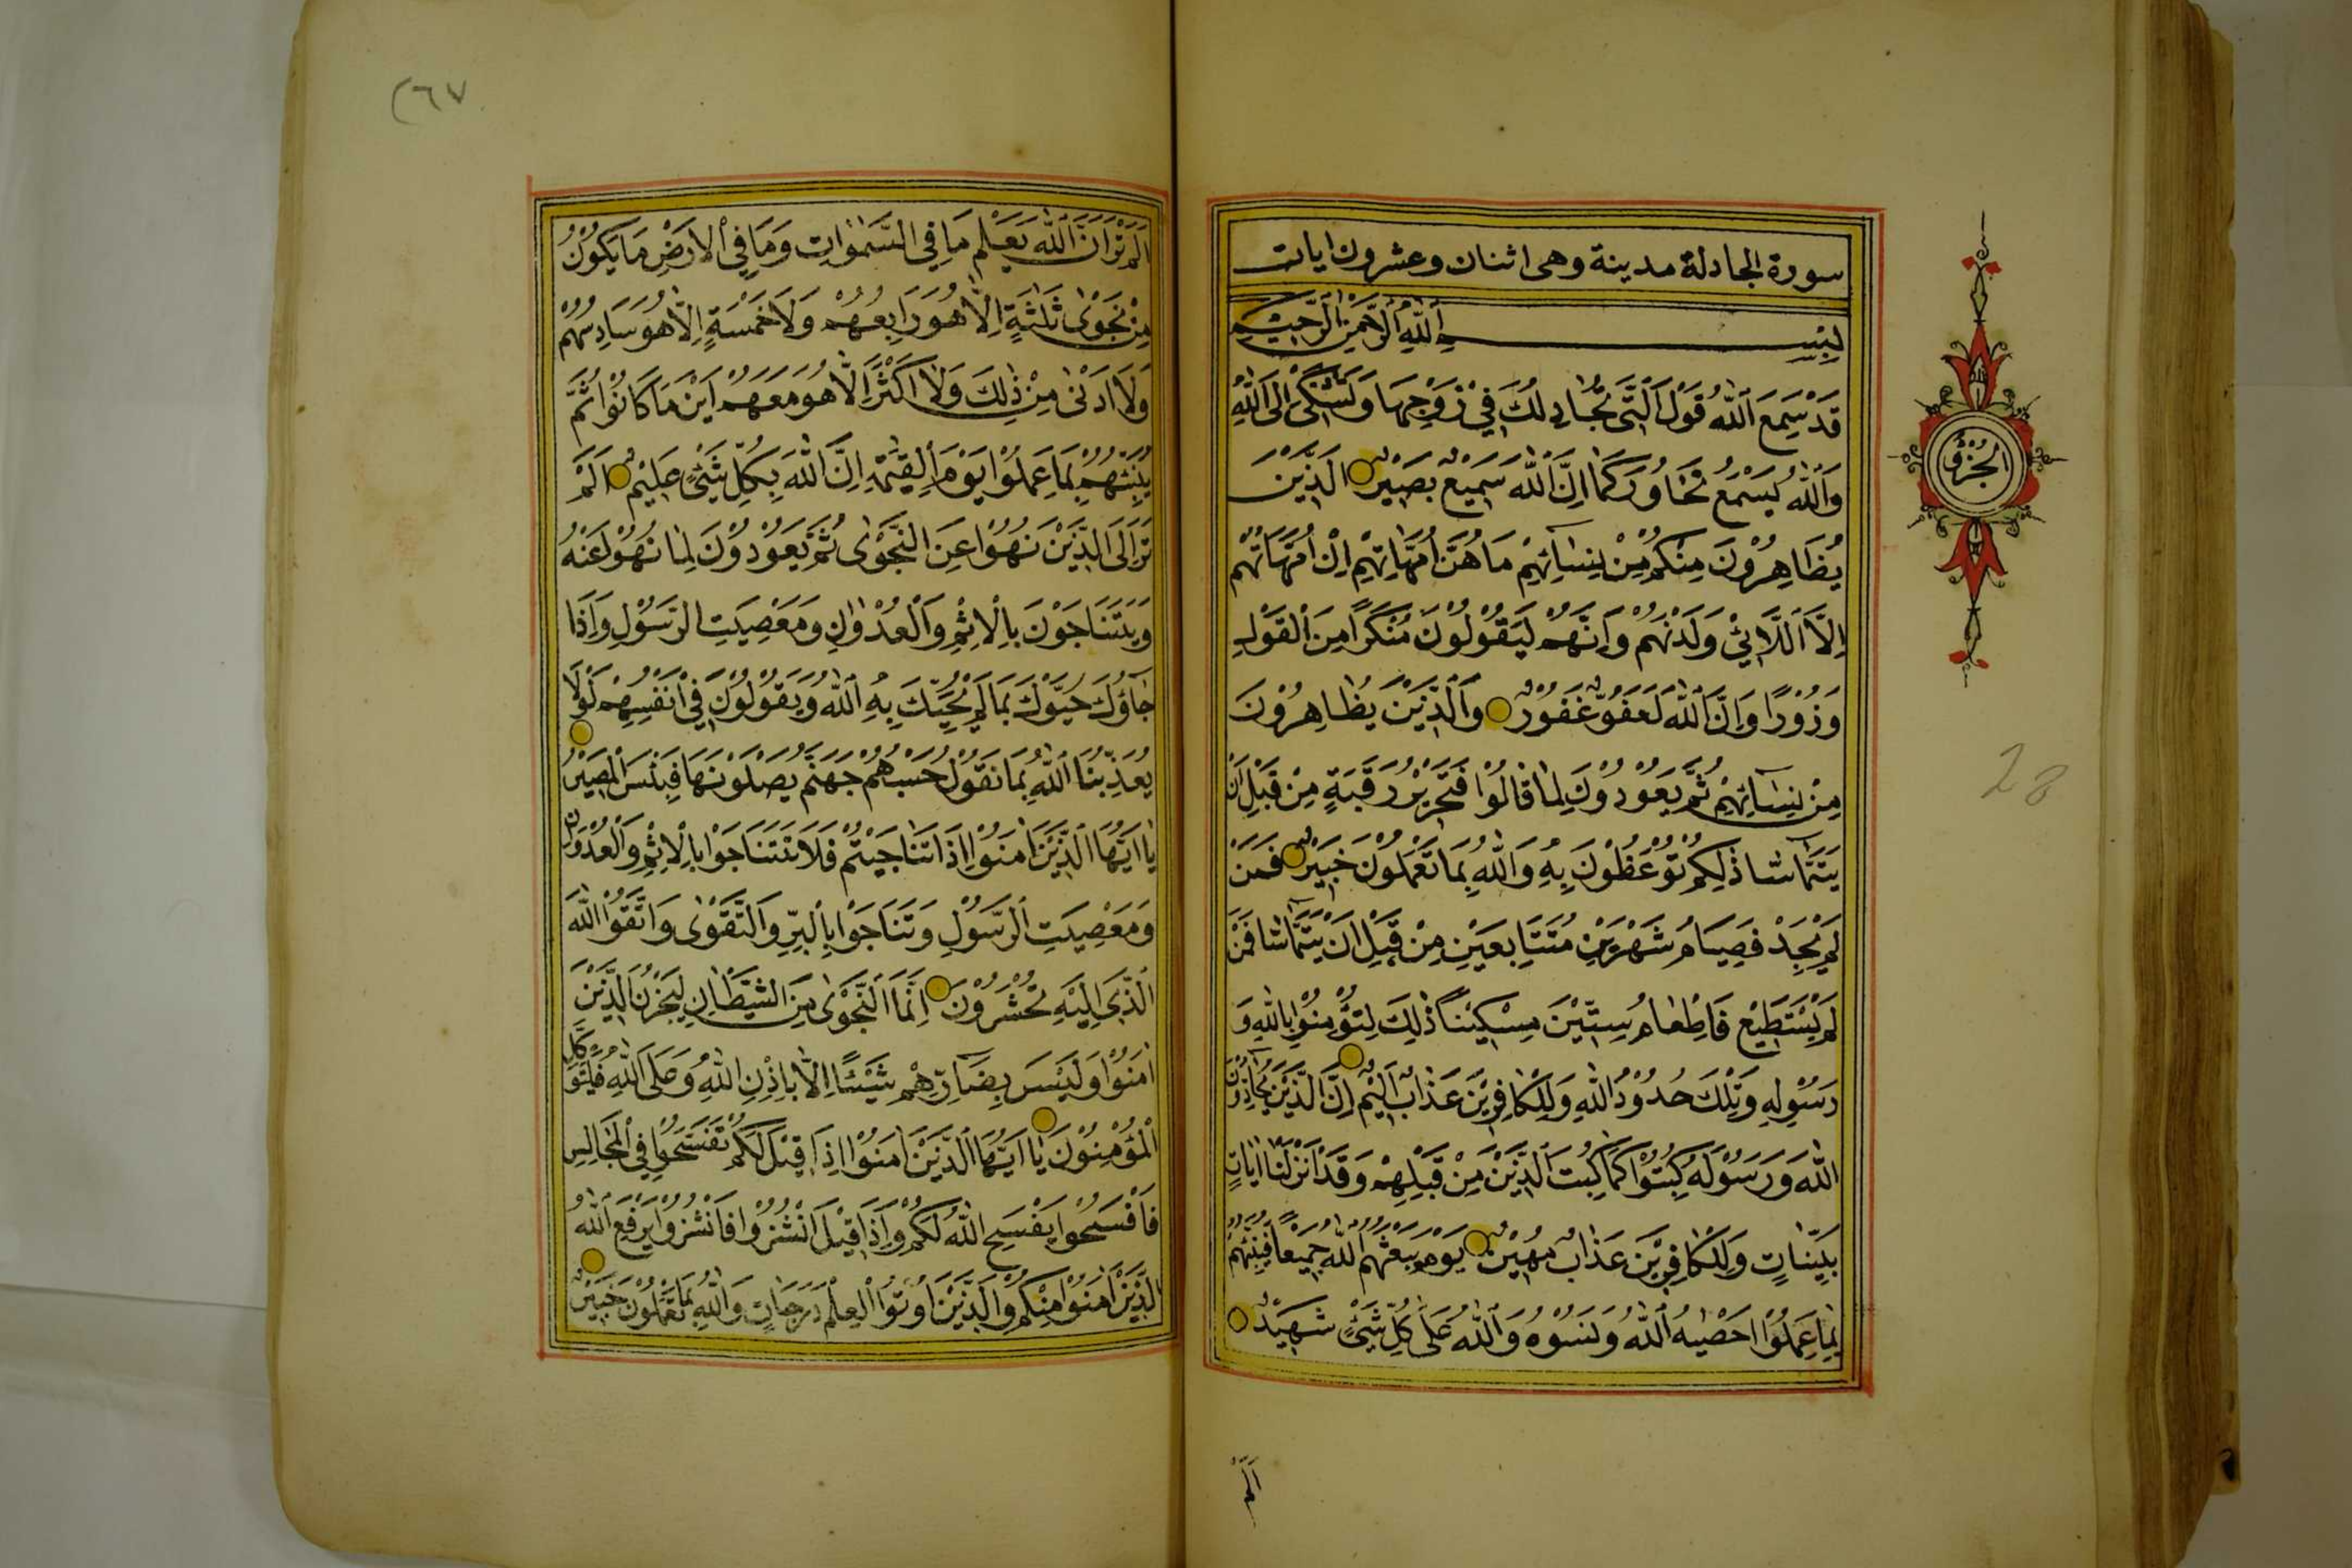 سورة المجادلة مدينة وهى اثنان وعشرون ايات
بِسْـــــــمِ اَللّٰهِ اَلرَّحْمٰنِ الرَّحِيْمِ
قَدْ سَمِعَ اَللّٰهُ قَوْلَ اَلَّتَى تُجَادِلُكَ فِيْ زَوْجِهَا وَتَشْتَكٰى اِلَى اَللّٰهِ
وَاَللّٰهُ يَسْمَعُ تَحَاوُرَكُمَا اِنَّ اَللّٰهَ سَمِيْعٌ بَصِيْرٌ الَذَّيْنَ
يُظَاهِرُوْنَ مِنْكُمْ مِنْ نِسَائِهِمْ مَاهُنَّ اُمَّهَاتِهِمْ اِنْ اُمَّهَاتُهُمْ
اِلَّا اَللَّائِيْ وَلَدْنَهُمْ وَاِنَّهُمْ لَيَقُوْلُوْنَ مُنْكَرًا مِنَ اَلْقَوْلِ
وَزُوْرًا وَاِنَّ اَللّٰهَ لَعَفُوٌّ غَفُوْرٌ وَاَلَّذَيْنَ يُظَاهِرُوْنَ
مِنْ نِسَائِهِمْ ثُمَّ يَعُوْدُوْنَ لِمٰا قَالُوْا فَتَحْرِيْرُ رَقَبَةٍ مِنْ قَبْلِ اَنْ
يَتَمَاسّا ذٰلِكُمْ تُوْعَظُوْنَ بِهِ وَاللّٰهُ بِمَا تَعْمَلُوْنَ خَبِيْرٌ فَمَنْ
لَمْ يَجِدْ فَصِيَامُ شَهْرَيْنِ مُتَتَابِعَيْنِ مِنْ قَبْلِ اَنْ يَتَمَاسّا فَمَنْ
لَمْ يَسْتَطِيْع فَاِطْعٰامُ سِتِّيْنَ مِسْكِيْنًا ذٰلِكَ لِتُؤْمِنُوْا بِاللّٰهِ وَ
رَسُوْلِهِ وَتِلْكَ حُدُوْدُ اللّٰهِ وَلِلْكَافِرِيْنَ عَذٰابٌ اَلِيْمٌ اِنَّ الَّذَيْنَ يُحَادُّوْنَ
اللّٰهَ وَرَسُوْلَهُ كُبِتُوْا كَمَا كُبِتَ الَّذَيْنَ مِنْ قَبْلِهِمْ وَقَدْ اَنْزَلْنَا اٰيَاتٍ
بَيِّنَاتٍ وَلِلْكَافِرِيْنَ عَذَابٌ مُهِيْنٌ يَوْمَ يَبْعَثُهُمُ اللّٰهُ جَمِيْعًا فَيُنَبِّئُهُمْ
بِمَا عَمِلُوْا اَحْصٰيهُ اَللّٰهُ وَنَسُوْهُ وَاَللّٰهُ عَلَى كُلِّ شَئٍْ شَهِيْدٌ
اَلَمْ
الجُزْؤُ
28
٢٦٧
اَلَمْ تَرَ اَنَّ اَللّٰهَ يَعْلَمُ مَا فِي السَّمٰوٰاتِ وَمَا فِي اْلاَرْضِ مَا يَكُوْنُ
مِنْ نَجْوٰى ثَلٰثَةٍ اِلَّا هُوَ رَابِعُهُمْ وَلَا خَمْسَةٍ اِلَّا هُوَ سَادِسُهُمْ
وَلَا اَدْنٰى مِنْ ذٰلِكَ وَلٰا اَكْثَرَ اِلَّا هُوَ مَعَهُمْ اَيْنَ مَا كَانُوْا ثُمَّ
يُنَبِّئُهُمْ بِمَا عَمِلُوْا يَوْمَ اَلْقِيٰمَةِ اِنَّ اللّٰهَ بِكُلِّ شَيْئٍ عَلِيْمٌ اَلَمْ
تَرَ اِلَى الَّذَيْنَ نُهُوْا عَنِ النَّجْوٰى ثُمَّ يَعُوْدُوْنَ لِمٰا نُهُوْا عَنْهُ
وَيَتَنَاجَوْنَ بِاْلاِثْمِ وَاَلْعُدْوٰانِ وَمَعْصِيَتِ الرَّسُوْلِ وَاِذَا
جَاؤُكَ حَيَّوْكَ بِمَا لَمْ يُحَيِّكَ بِهِ اَللّٰهُ وَيَقُوْلُوْنَ فِيْ اَنْفُسِهِمْ لَوْلَا
يُعَذِّبُنَا اَللّٰهُ بِمَا نَقُوْلُ حَسْبُهُمْ جَهَنَّمُ يَصْلَوْنَهَا فَبِئْسَ الْمَصِيْرُ
يٰا اَيُّهَا اَلَّذَيْنَ اٰمَنُوْا اِذَا تَنٰاجَيْتُمْ فَلَا تَتَنَاجَوْا بِاْلاِثْمِ وَاْلعُدْوَانِ
وَمَعْصِيَتِ اَلرَّسُوْلِ وَتَنَاجَوْا بِاْلبِرِّ وَالتَّقْوٰى وَاتَّقُوْا اللّٰهَ
الَّذَى اِلَيْهِ تُحْشَرُوْنَ اِنَّمَا اَلنَّجْوٰى مِنَ الشَّيْطَانِ لِيَحْزُنَ الَّذَيْنَ
اٰمَنُوْا وَلَيْسَ بِضَارِّهِمْ شَيْئًا اِلَّا بِاِذْنِ اللّٰهِ وَعَلَى اَللّٰهِ فَلْيَتَوَكَّلِ
الْمُؤْمِنُوْنَ يٰا اَيُّهَا اَلَّذَيْنَ اٰمَنُوْا اِذَا قِيْلَ لَكُمْ تَفَسَّحُوْا فِي الْمَجَالِسِ
فَافْسَحُوْا يَفْسَحِ اللّٰهُ لَكُمْ وَاِذَا قِيْلَ انْشُزُوْا فَانْشُزُوْا يَرْفَعِ اللّٰهُ
الَّذَيْنَ اٰمَنُوْا مِنْكُمْ وَالَّذَيْنَ اُوْتُوْا الْعِلْمَ دَرَجَاتٍ وَاللّٰهُ بِمَا تَعْمَلُوْنَ خَبِيْرٌ